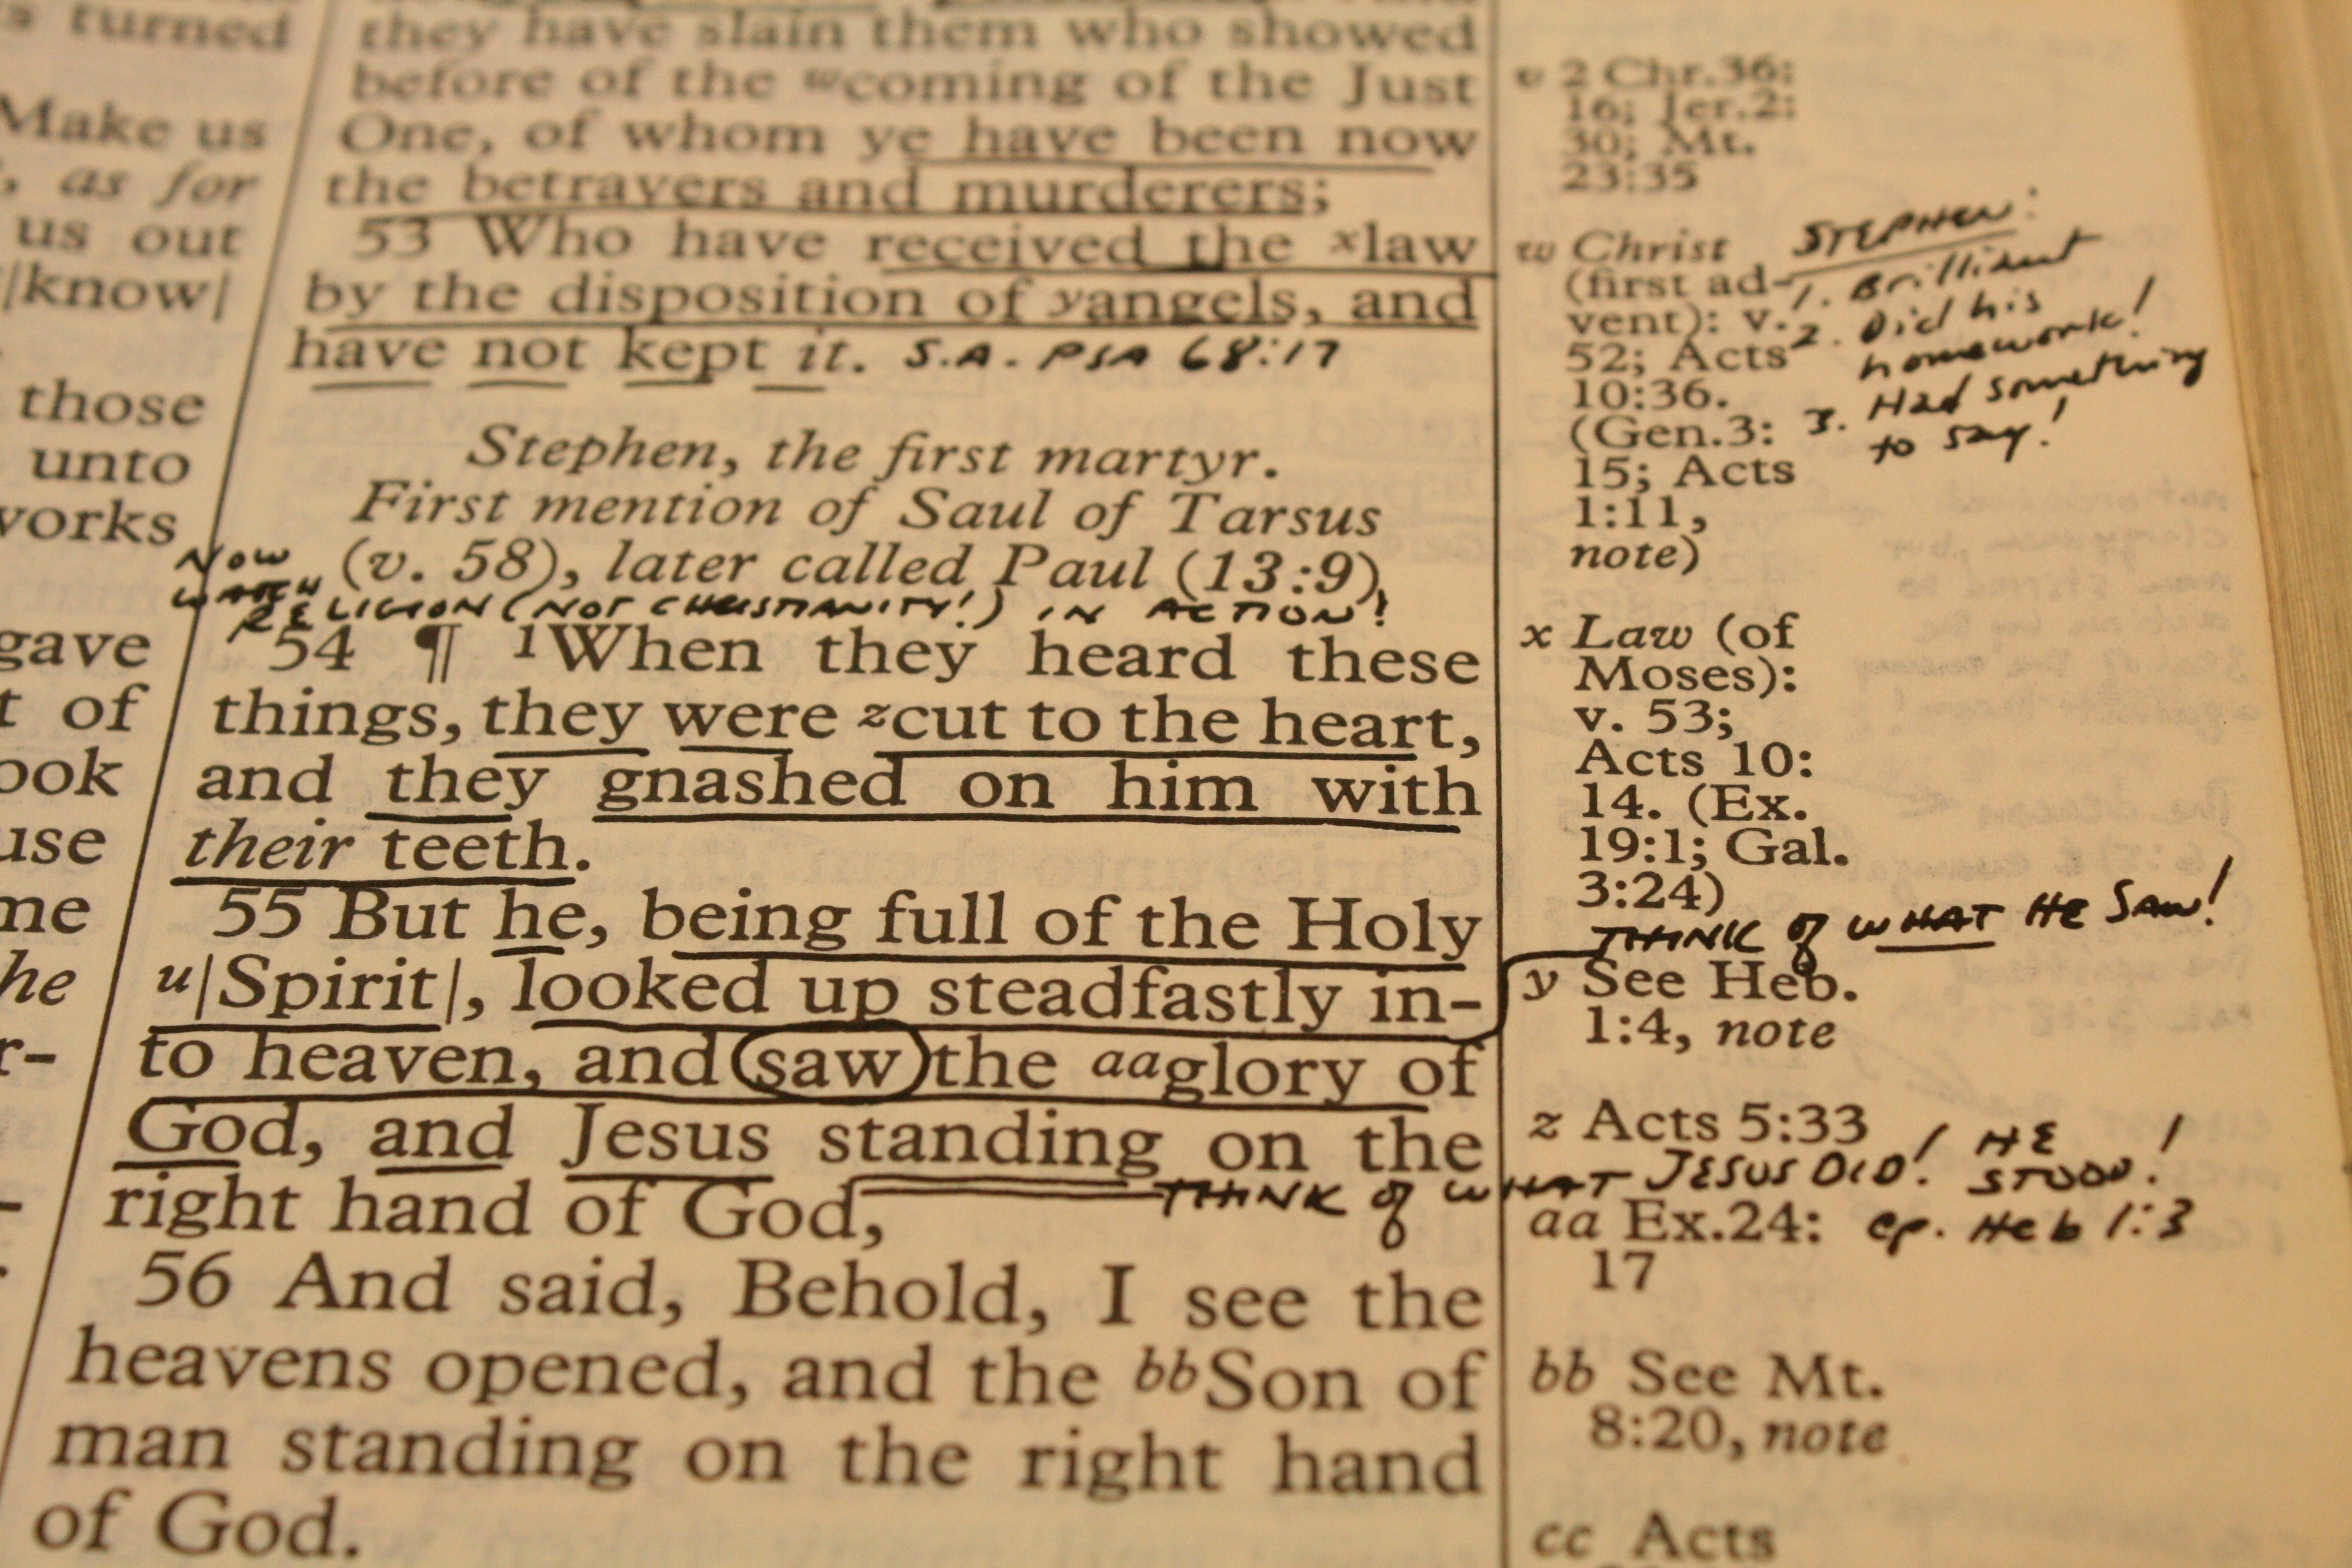 turned
Make us
as for
us out
|know|
those
unto
works
gave
t of
ook
use
me
he
r-
they have slain them who showed
before of the wcoming of the Just
One, of whom ye have been now
the betrayers and murderers;
53 Who have received the xlaw
by the disposition of yangels, and
have not kept it. S.A. PSA 68:17
Stephen, the first martyr.
First mention of Saul of Tarsus
(v. 58), later called Paul (13:9)
NOW
WATCH
RELIGION (NOT CHRISTIANITY!) IN ACTION!
54 ¶ 1When they heard these
things, they were zcut to the heart,
and they gnashed on him with
their teeth.
55 But he, being full of the Holy
u|Spirit|, looked up steadfastly in-
to heaven, and saw the aaglory of
God, and Jesus standing on the
right hand of God,
THINK of WHAT JESUS DID! HE
STOOD!
56 And said, Behold, I see the
heavens opened, and the bbSon of
man standing on the right hand
of God.
v 2 Chr.36:
16; Jer.2:
30; Mt.
23:35
w Christ
(first ad-
vent): v.
52; Acts
10:36.
(Gen.3:
15; Acts
1:11,
note)
STEPHEN:
1. Brillident
2. Did his
homework!
3. Had something
to say!
x Law (of
Moses):
v. 53;
Acts 10:
14. (Ex.
19:1; Gal.
3:24)
THINK of WHAT HE SAW!
y See Heb.
1:4, note
z Acts 5:33
aa Ex.24: cp. Heb 1:3
17
bb See Mt.
8:20, note
cc Acts